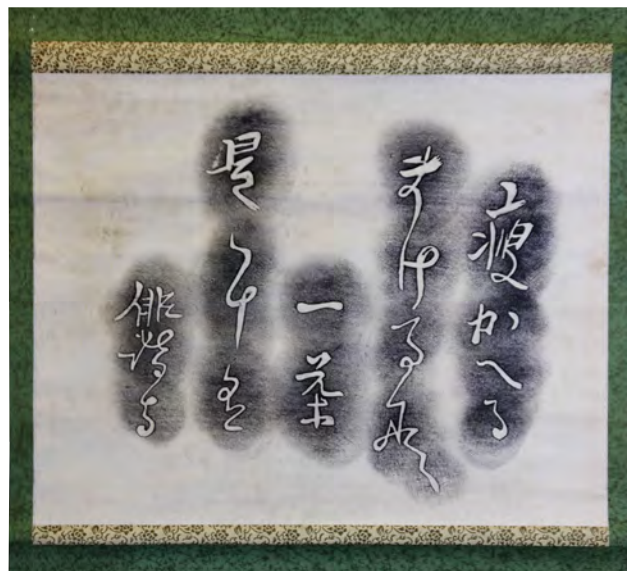 痩かへる
まけるな
一茶
是に有
俳諧寺